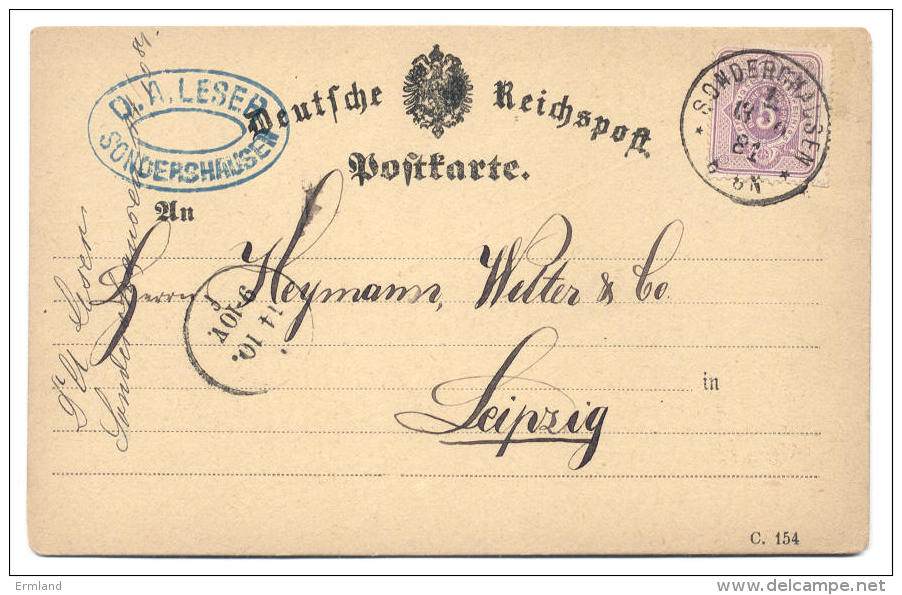 D. A. LESER
SONDERSHAUSEN
Deutsche Reichspost
Postkarte.
SONDERSHAUSEN
81
8-9N
5
An
Herrn Heymann, Welter & Co
in
Leipzig
14 10.
9-10V.
C. 154
Ermland
www.delcampe.net